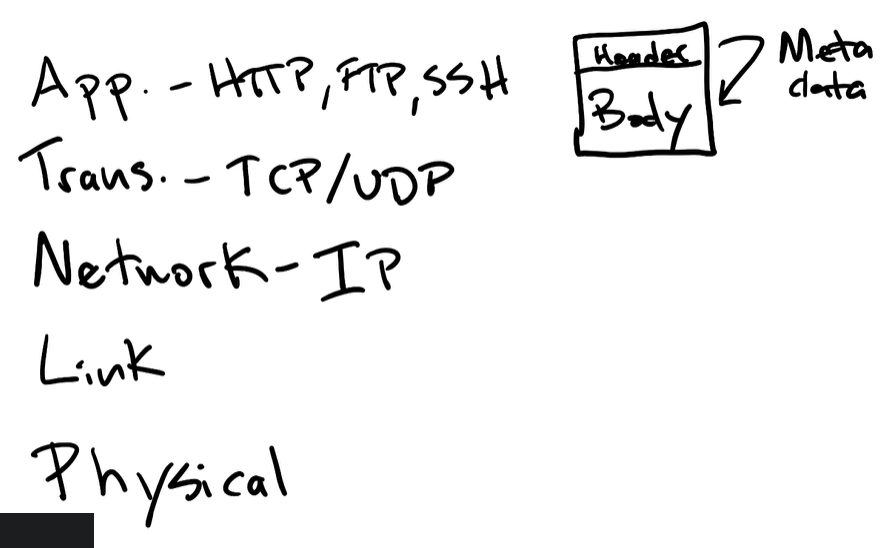 App. - HTTP, FTP, SSH
Trans. - TCP/UDP
Network - IP
Link
Physical
Header
Body
Meta
data